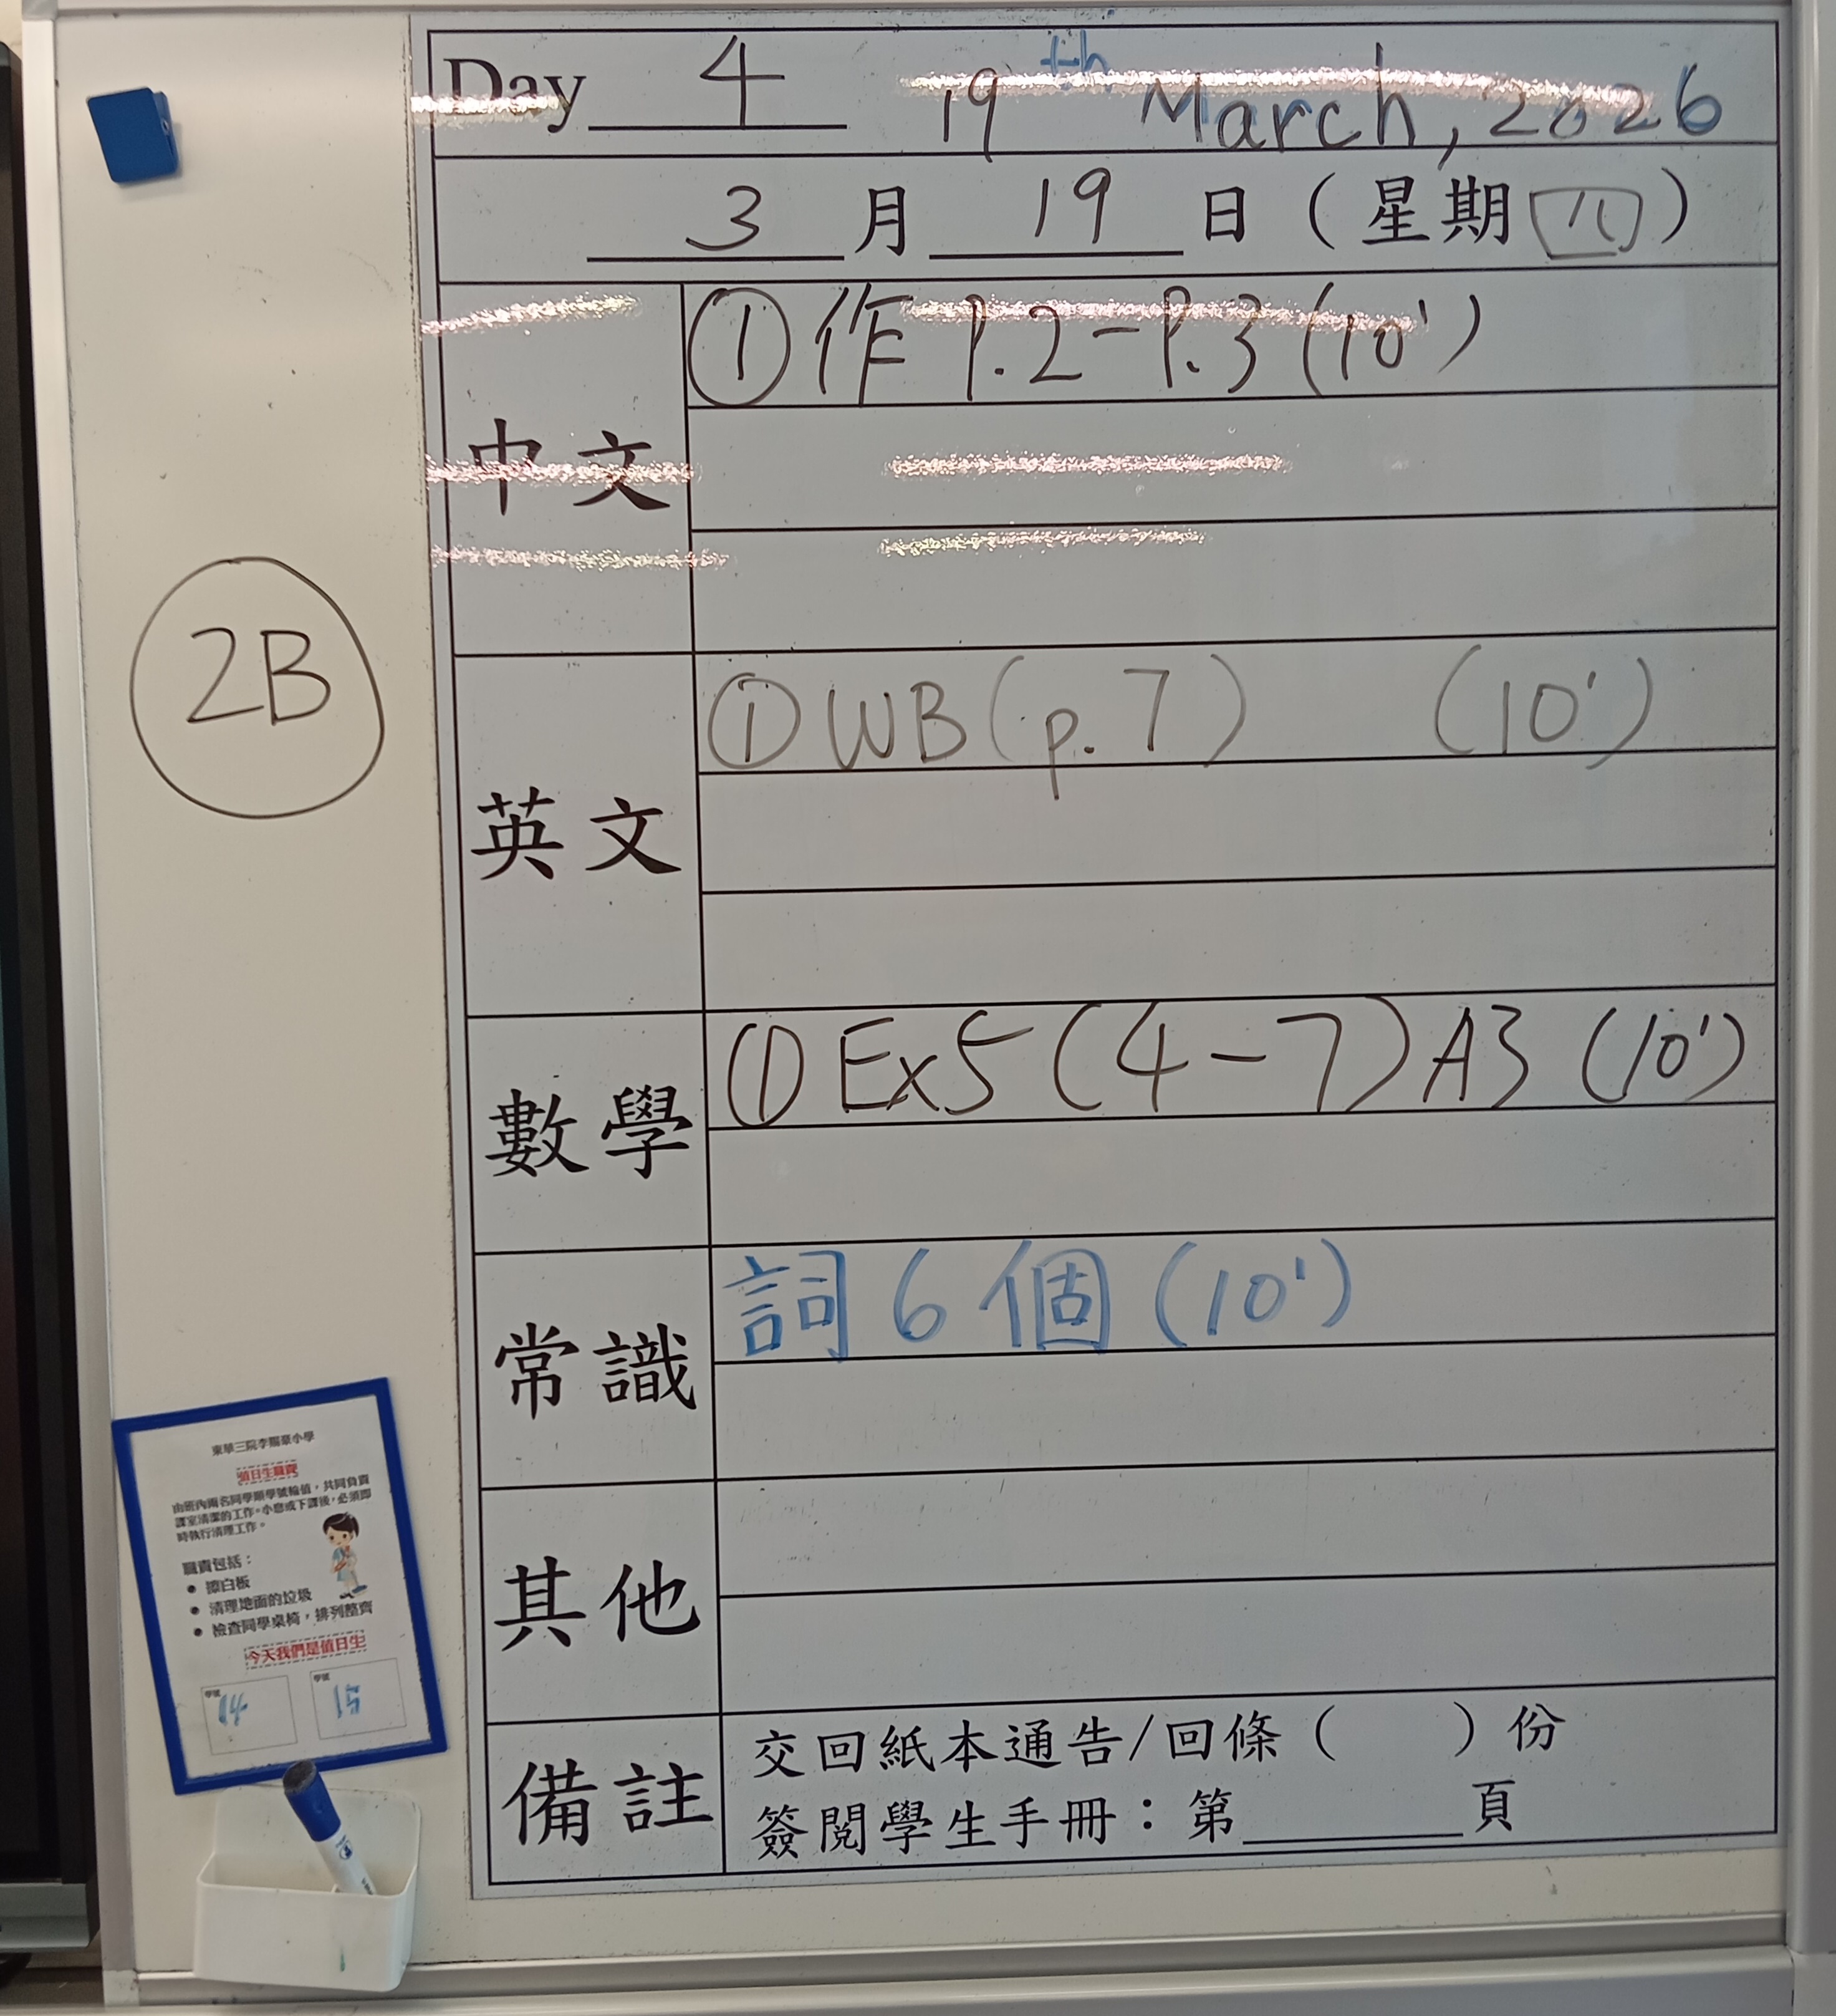 Day 4 19th March, 2026
3 月 19 日 ( 星期 四 )
中文
① 作 P.2-P.3 (10')
2B
英文
① WB (p.7) (10')
數學
① Ex5 (4-7) A3 (10')
常識
詞 6 個 (10')
其他
備註
交回紙本通告/回條 ( ) 份
簽閱學生手冊：第______頁
東華三院李賜豪小學
值日生職責
由班內兩名同學順學號輪值，共同負責
課室清潔的工作。小息或下課後，必須即
時執行清理工作。
職責包括：
● 擦白板
● 清理地面的垃圾
● 檢查同學桌椅，排列整齊
今天我們是值日生
學號
學號